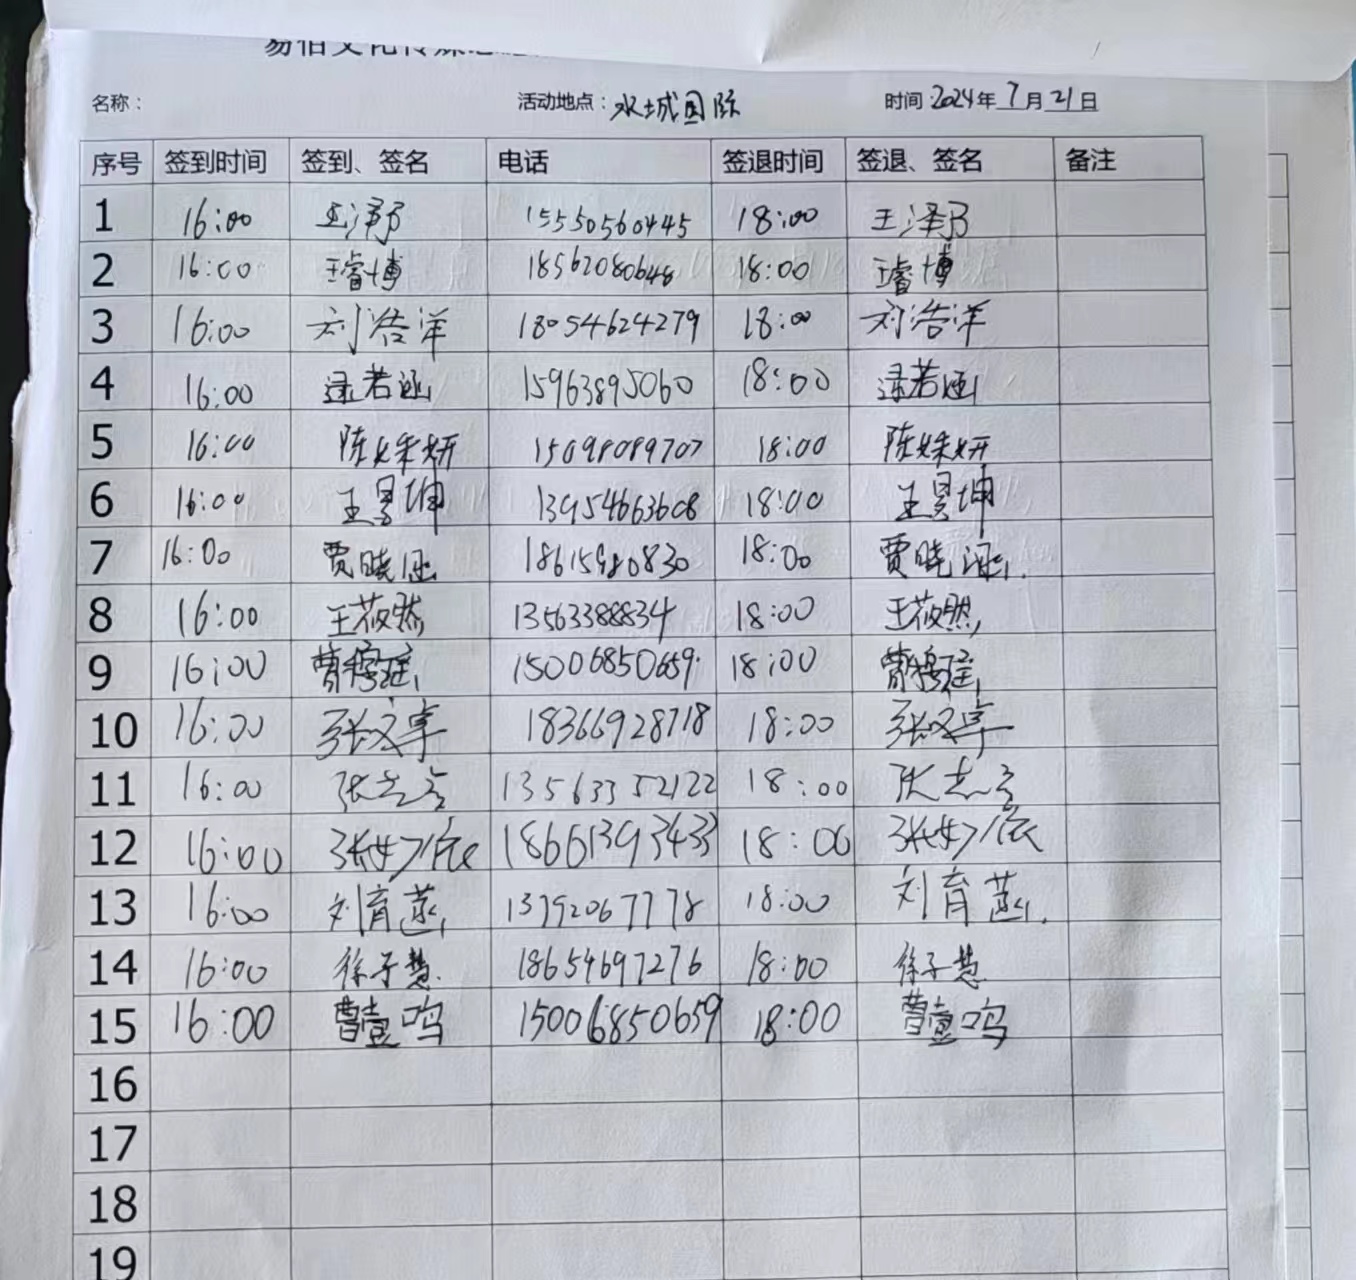 名称：
活动地点：水城国际
时间 2024年7月21日
序号 签到时间 签到、签名 电话 签退时间 签退、签名 备注
1 16:00 王泽乃 15550560445 18:00 王泽乃
2 16:00 王睿博 18562080648 18:00 王睿博
3 16:00 刘浩洋 18054624279 18:00 刘浩洋
4 16:00 逯若涵 15963895060 18:00 逯若涵
5 16:00 陈姝妍 15098089707 18:00 陈姝妍
6 16:00 王昱坤 13954663608 18:00 王昱坤
7 16:00 贾晓涵 18615980830 18:00 贾晓涵
8 16:00 王筱然 13563388834 18:00 王筱然
9 16:00 曹穆瑶 15006850659 18:00 曹穆瑶
10 16:00 张文卓 18366928718 18:00 张文卓
11 16:00 张志言 13563352122 18:00 张志言
12 16:00 18661393433 18:00
13 16:00 刘育菡 13792067778 18:00 刘育菡
14 16:00 徐子慧 18654697276 18:00 徐子慧
15 16:00 曹壹鸣 15006850659 18:00 曹壹鸣
16
17
18
19